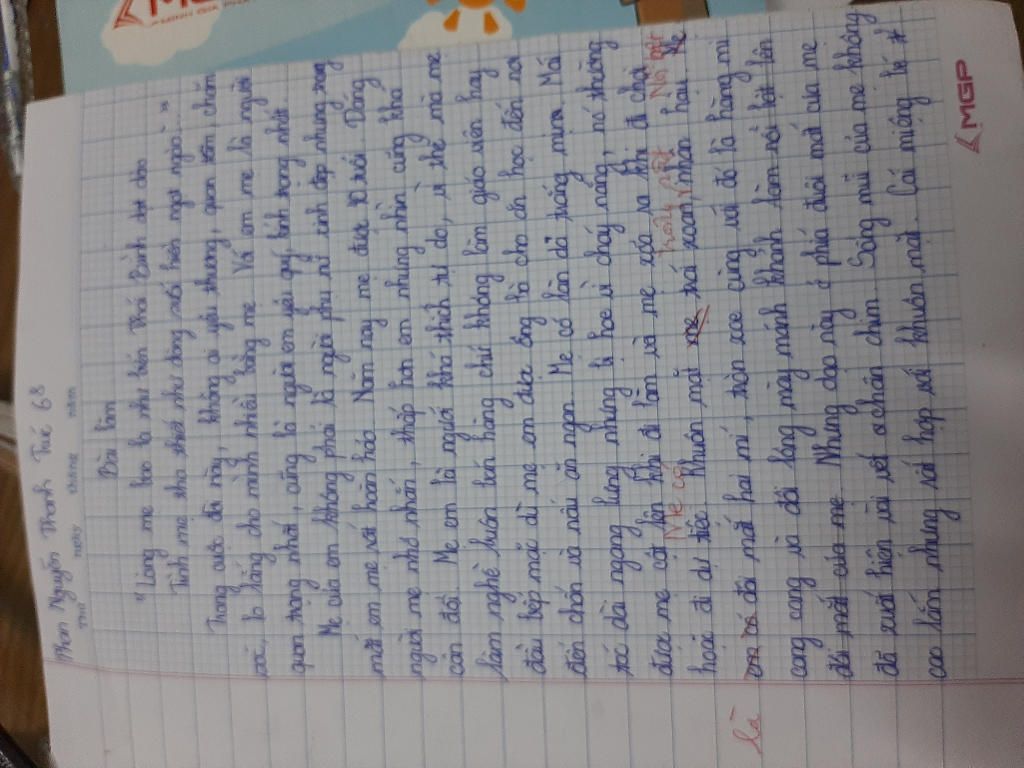 Phan Nguyễn Thanh Trúc 6.8
Thứ ngày tháng năm
Bài làm
"Lòng mẹ bao la như biển Thái Bình dạt dào
Tình mẹ tha thiết như dòng suối hiền ngọt ngào..."
Trong cuộc đời này, không ai yêu thương, quan tâm, chăm
sóc, lo lắng cho mình nhiều bằng mẹ. Với em mẹ là người
quan trọng nhất, cũng là người em yêu quý, kính trọng nhất.
Mẹ của em không phải là người phụ nữ xinh đẹp nhưng trong
mắt em mẹ rất hoàn hảo. Năm nay mẹ được 40 tuổi. Dáng
người mẹ nhỏ nhắn, thấp hơn em nhưng nhìn cũng khá
cân đối. Mẹ em là người khá thích tự do, vì thế mà mẹ
làm nghề buôn bán hàng chứ không làm giáo viên hay
đầu bếp mặc dù mẹ em được ông bà cho ăn học đến nơi
đến chốn và nấu ăn ngon. Mẹ có làn da trắng mịn. Mái
tóc dài ngang lưng nhưng bị hoe vì cháy nắng, nó thường
được mẹ cột lên khi đi làm và mẹ xóa ra khi đi chơi
Mẹ có
hoặc đi dự tiệc. Khuôn mặt mẹ trái xoan,
là em có đôi mắt hai mí, tròn xoe cùng với đó là hàng mi
cong cong và đôi lông mày mảnh khảnh làm nổi bật lên
đôi mắt của mẹ. Nhưng dạo này ở phía dưới mắt của mẹ
đã xuất hiện vài vết chân chim. Sống mũi của mẹ không
cao lắm nhưng rất hợp với khuôn mặt. Cái miệng
MGP